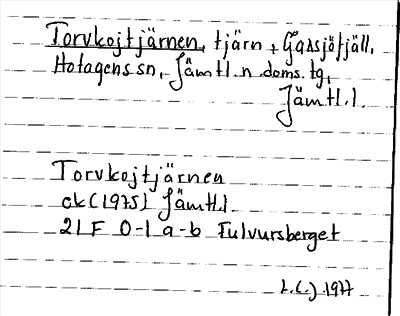 Torvkojtjärnen, tjärn, Gåssjöfjäll,
Hotagens sn, Jämtl. n. doms. tg,
Jämtl. l.
Torvkojtjärnen
ek (1975) Jämtl.
21 F 0-1 a-b Fulvursberget
1977